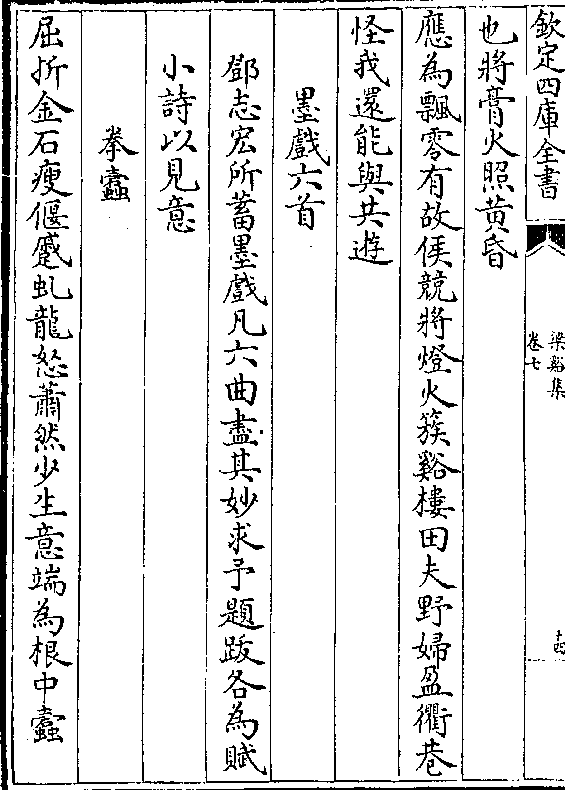 欽定四庫全書
梁谿集
卷七
十四
也將膏火照黃昏
應為飄零有故侯競將燈火簇谿樓田夫野婦盈衢巷
怪我還能與共遊
墨戲六首
鄧志宏所蓄墨戲凡六曲盡其妙求予題跋各為賦
小詩以見意
拳蠹
屈折金石瘦偃蹇虬龍怒蕭然少生意端為根中蠹